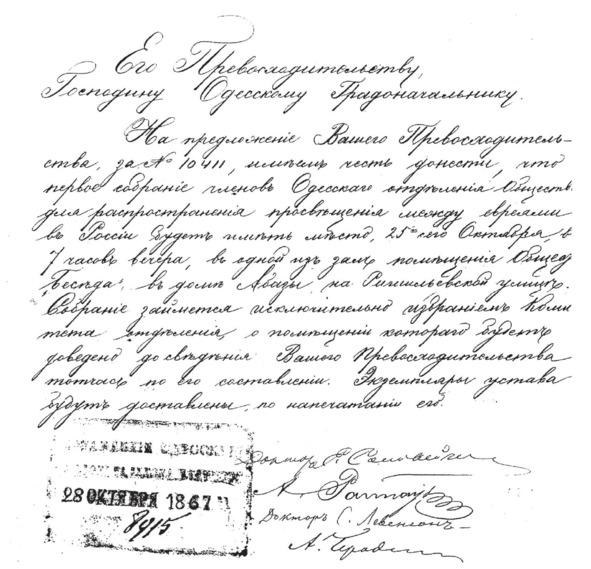 Его Превосходительству,
Господину Одесскому Градоначальнику.
На предложеніе Вашего Превосходитель-
ства, за № 10411, имѣемъ честь донести, что
первое собраніе членовъ Одесскаго отдѣленія Обществ.
для распространенія просвѣщенія между евреями
въ Россіи будетъ имѣть мѣсто, 25го сего Октября, въ
7 часовъ вечера, въ одной изъ залъ помѣщенія Общед.
"Бесѣда", въ домѣ Абазы, на Ришельевской улицѣ.
Собраніе займется исключительно избраніемъ Коми
тета отдѣленія, о помѣщеніи котораго будетъ
доведено до свѣдѣнія Вашего Превосходительства
тотчасъ по его составленіи. Экземпляры устава
будутъ доставлены, по напечатаніи его.
Докторъ
28 ОКТЯБРЯ 1867
А.
8915
Докторъ С.
А.